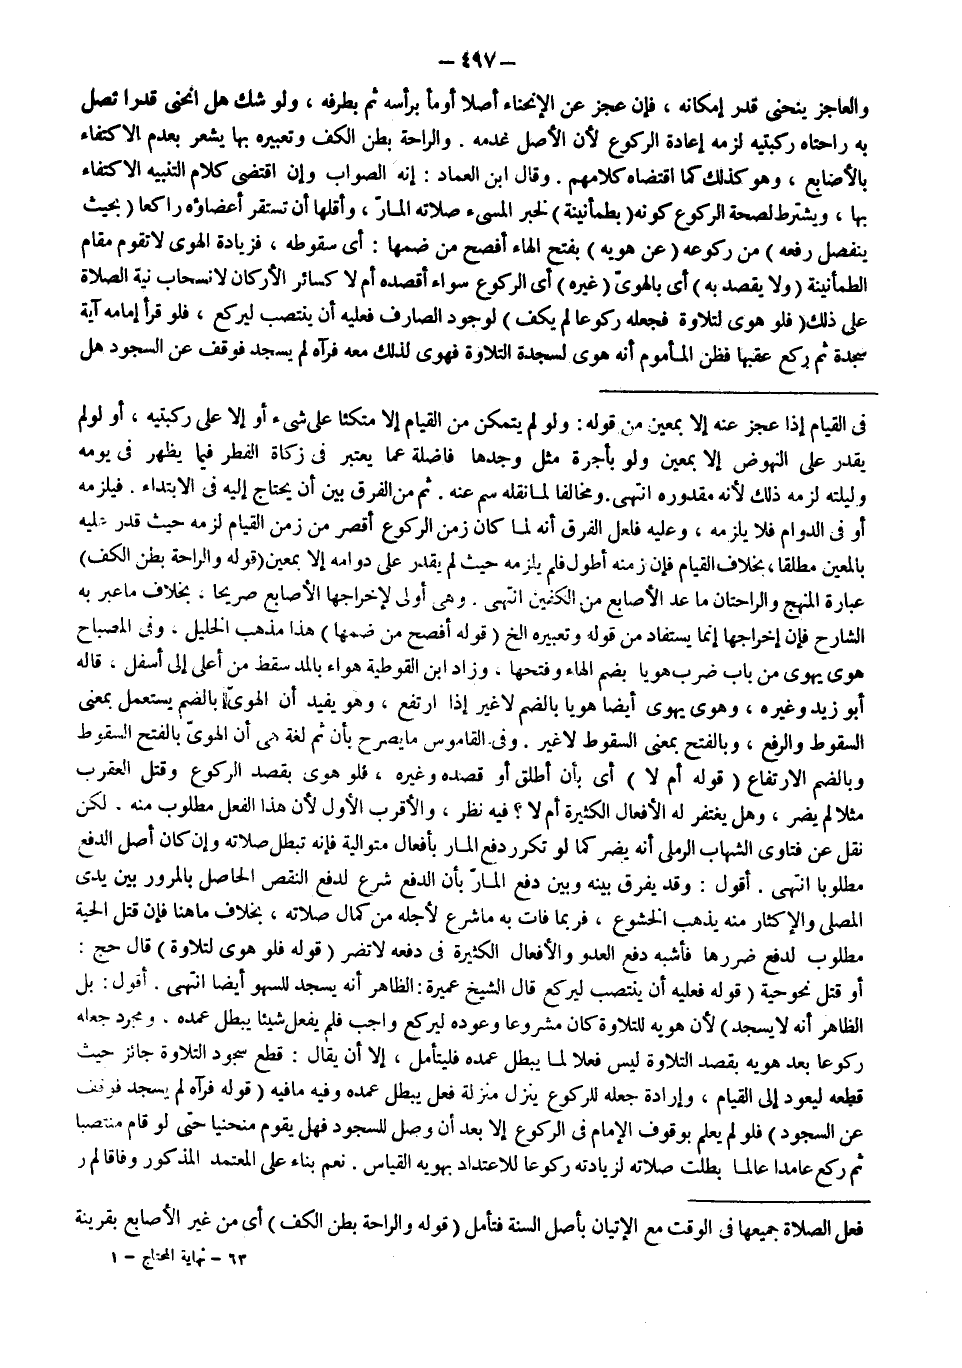 — ٤٩٧ —
والعاجز ينحنى قدر إمكانه ، فإن عجز عن الإنحناء أصلا أومأ برأسه ثم بطرفه ، ولو شك هل انحنى قدرا تصل
به راحتاه ركبتيه لزمه إعادة الركوع لأن الأصل عدمه . والراحة بطن الكف وتعبيره بها يشعر بعدم الاكتفاء
بالأصابع ، وهو كذلك كما اقتضاه كلامهم . وقال ابن العماد : إنه الصواب وإن اقتضى كلام التنبيه الاكتفاء
بها ، ويشترط لصحة الركوع كونه ( بطمأنينة ) لخبر المسىء صلاته المارّ ، وأقلها أن تستقر أعضاؤه راكعا ( بحيث
ينفصل رفعه ) من ركوعه ( عن هويه ) بفتح الهاء أفصح من ضمها : أى سقوطه ، فزيادة الهوى لاتقوم مقام
الطمأنينة ( ولا يقصد به ) أى بالهوىّ ( غيره ) أى الركوع سواء أقصده أم لا كسائر الأركان لانسحاب نية الصلاة
على ذلك ( فلو هوى لتلاوة فجعله ركوعا لم يكف ) لوجود الصارف فعليه أن ينتصب ليركع ، فلو قرأ إمامه آية
سجدة ثم ركع عقبها فظن المأموم أنه هوى لسجدة التلاوة فهوى لذلك معه فرآه لم يسجد فوقف عن السجود هل
فى القيام إذا عجز عنه إلا بمعين من قوله : ولو لم يتمكن من القيام إلا متكئا على شىء أو إلا على ركبتيه ، أو لولم
يقدر على النهوض إلا بمعين ولو بأجرة مثل وجدها فاضلة عما يعتبر فى زكاة الفطر فيما يظهر فى يومه
وليلته لزمه ذلك لأنه مقدوره انتهى . ومخالفا لما نقله سم عنه . ثم من الفرق بين أن يحتاج إليه فى الابتداء . فيلزمه
أو فى الدوام فلا يلزمه ، وعليه فلعل الفرق أنه لما كان زمن الركوع أقصر من زمن القيام لزمه حيث قدر عليه
بالمعين مطلقا ، بخلاف القيام فإن زمنه أطول فلم يلزمه حيث لم يقدر على دوامه إلا بمعين ( قوله والراحة بطن الكف )
عبارة المنهج والراحتان ما عد الأصابع من الكفين انتهى . وهى أولى لإخراجها الأصابع صريحا ، بخلاف ماعبر به
الشارح فإن إخراجها إنما يستفاد من قوله وتعبيره الخ ( قوله أفصح من ضمها ) هذا مذهب الخليل ، وفى المصباح
هوى يهوى من باب ضرب هويا بضم الهاء وفتحها ، وزاد ابن القوطية هواء بالمد سقط من أعلى إلى أسفل ، قاله
أبو زيد وغيره ، وهوى يهوى أيضا هويا بالضم لاغير إذا ارتفع ، وهو يفيد أن الهوىّ بالضم يستعمل بمعنى
السقوط والرفع ، وبالفتح بمعنى السقوط لاغير . وفى القاموس مايصرح بأن ثم لغة هى أن الهوىّ بالفتح السقوط
وبالضم الارتفاع ( قوله أم لا ) أى بأن أطلق أو قصده وغيره ، فلو هوى بقصد الركوع وقتل العقرب
مثلا لم يضر ، وهل يغتفر له الأفعال الكثيرة أم لا ؟ فيه نظر ، والأقرب الأول لأن هذا الفعل مطلوب منه . لكن
نقل عن فتاوى الشهاب الرملى أنه يضر كما لو تكرر دفع المار بأفعال متوالية فإنه تبطل صلاته وإن كان أصل الدفع
مطلوبا انتهى . أقول : وقد يفرق بينه وبين دفع المارّ بأن الدفع شرع لدفع النقص الحاصل بالمرور بين يدى
المصلى والإكثار منه يذهب الخشوع ، فربما فات به ماشرع لأجله من كمال صلاته ، بخلاف ماهنا فإن قتل الحية
مطلوب لدفع ضررها فأشبه دفع العدو والأفعال الكثيرة فى دفعه لاتضر ( قوله فلو هوى لتلاوة ) قال حج :
أو قتل نحوحية ( قوله فعليه أن ينتصب ليركع قال الشيخ عميرة : الظاهر أنه يسجد للسهو أيضا انتهى . أقول : بل
الظاهر أنه لايسجد ) لأن هويه للتلاوة كان مشروعا وعوده ليركع واجب فلم يفعل شيئا يبطل عمده . ومجرد جعله
ركوعا بعد هويه بقصد التلاوة ليس فعلا لما يبطل عمده فليتأمل ، إلا أن يقال : قطع سجود التلاوة جائز حيث
قطعه ليعود إلى القيام ، وإرادة جعله للركوع ينزل منزلة فعل يبطل عمده وفيه مافيه ( قوله فرآه لم يسجد فوقف
عن السجود ) فلو لم يعلم بوقوف الإمام فى الركوع إلا بعد أن وصل للسجود فهل يقوم منحنيا حتى لو قام منتصبا
ثم ركع عامدا عالما بطلت صلاته لزيادته ركوعا للاعتداد بهويه القياس . نعم بناء على المعتمد المذكور وفاقا لم ر
فعل الصلاة جميعها فى الوقت مع الإتيان بأصل السنة فتأمل ( قوله والراحة بطن الكف ) أى من غير الأصابع بقرينة
٦٣ - نهاية المحتاج - ١